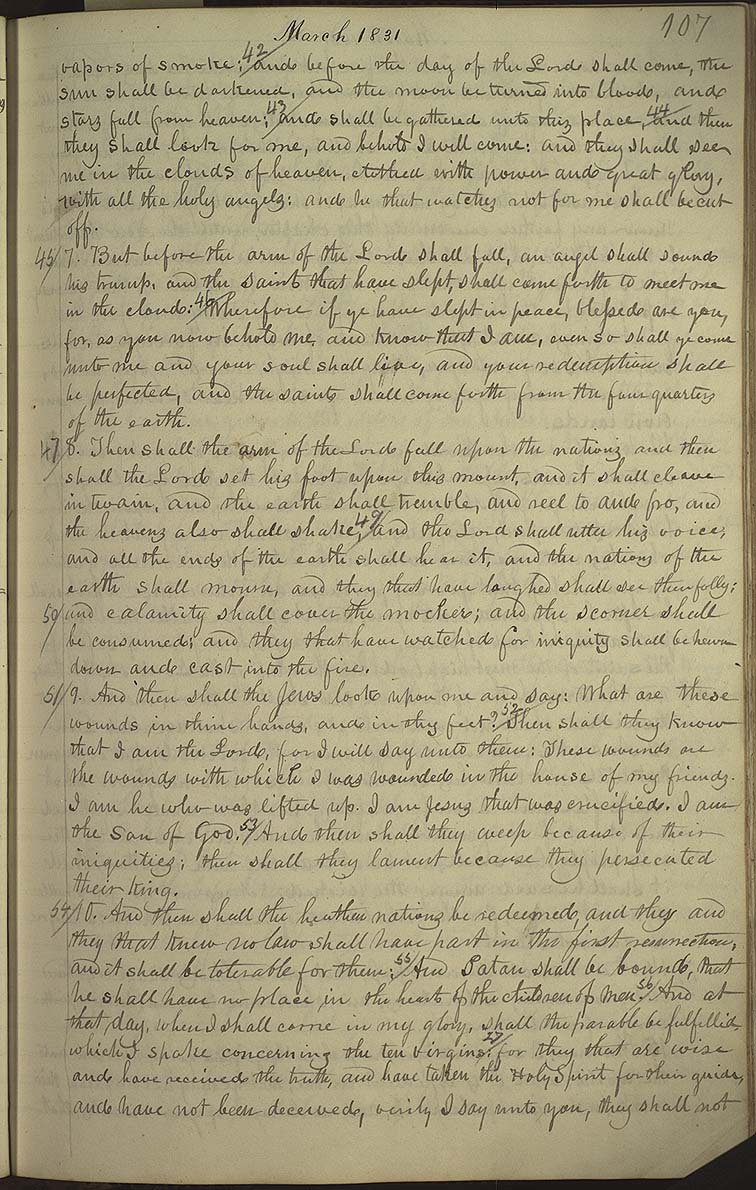 March 1831
107
vapors of smoke; 42/ and before the day of the Lord shall come, the
sun shall be darkened, and the moon be turned into blood, and
stars fall from heaven; 43/ and shall be gathered unto this place, 44/ and then
they shall look for me, and behold I will come: and they shall see
me in the clouds of heaven, clothed with power and great glory,
with all the holy angels: and he that watches not for me shall be cut
off.
45/ 7. But before the arm of the Lord shall fall, an angel shall sound
his trump, and the saints that have slept, shall come forth to meet me
in the cloud: 46/ Wherefore if ye have slept in peace, blessed are you,
for, as you now behold me, and know that I am, even so shall ye come
unto me and your soul shall live, and your redemption shall
be perfected, and the saints shall come forth from the four quarters
of the earth.
47/ 8. Then shall the arm of the Lord fall upon the nations, and then
shall the Lord set his foot upon this mount, and it shall cleave
in twain, and the earth shall tremble, and reel to and fro, and
the heavens also shall shake, 49/ and the Lord shall utter his voice,
and all the ends of the earth shall hear it, and the nations of the
earth shall mourn, and they that have laughed shall see their folly;
50/ and calamity shall cover the mocker; and the scorner shall
be consumed; and they that have watched for iniquity shall be hewn
down and cast into the fire.
51/ 9. And then shall the Jews look upon me and say: What are these
wounds in thine hands, and in thy feet? 52/ Then shall they know
that I am the Lord, for I will say unto them: These wounds are
the wounds with which I was wounded in the house of my friends.
I am he who was lifted up. I am Jesus that was crucified. I am
the Son of God. 53/ And then shall they weep because of their
iniquities; then shall they lament because they persecuted
their king.
54/ 10. And then shall the heathen nations be redeemed, and they and
they that knew no law shall have part in the first resurrection,
and it shall be tolerable for them; 55/ And Satan shall be bound, that
he shall have no place in the heart of the children of men. 56/ And at
that day, when I shall come in my glory, shall the parable be fulfilled
which I spake concerning the ten virgins: 57/ for they that are wise
and have received the truth, and have taken the Holy Spirit for their guide,
and have not been deceived, verily I say unto you, they shall not